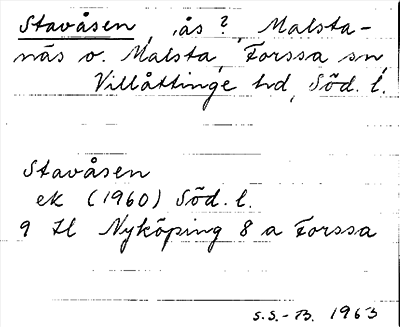 Stavåsen, ås?, Malsta-
näs o. Malsta, Forssa sn,
Villåttinge hd, Söd. l.
Stavåsen
ek (1960) Söd. l.
9 H Nyköping 8 a Forssa
S.S.-B. 1963